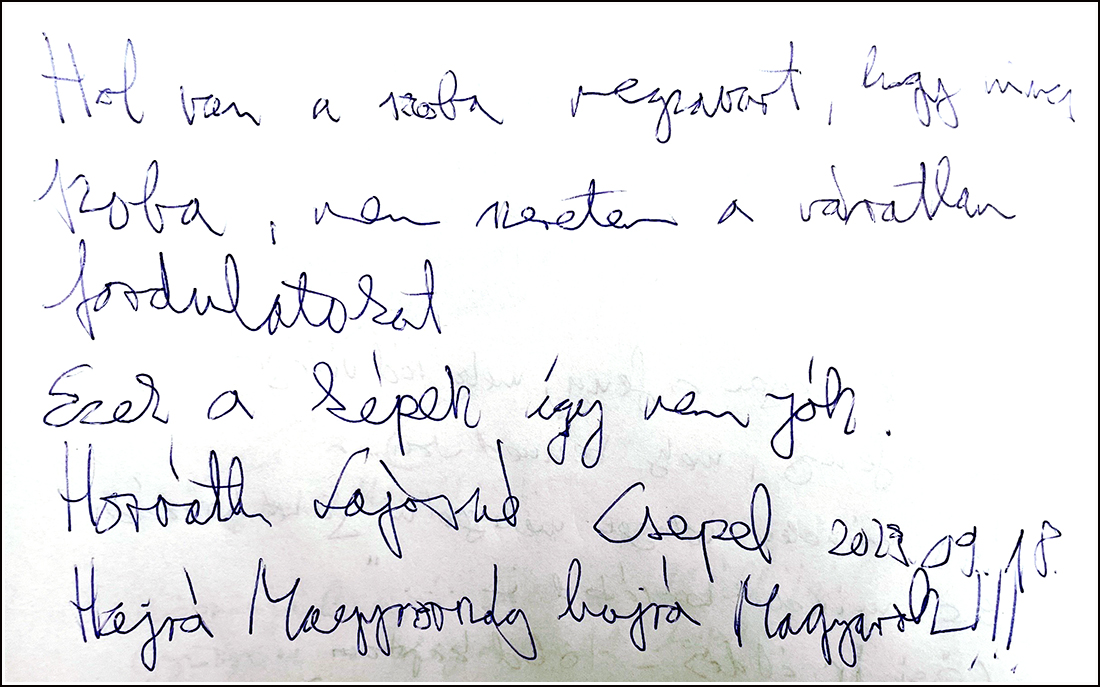 Hol van a szoba megzavart, hogy nincs
szoba, nem szeretem a váratlan
fordulatokat
Ezek a képek így nem jók.
Horváth Lajosné Csepel 2023.09.18.
Hajrá Magyarország hajrá Magyarok!!!